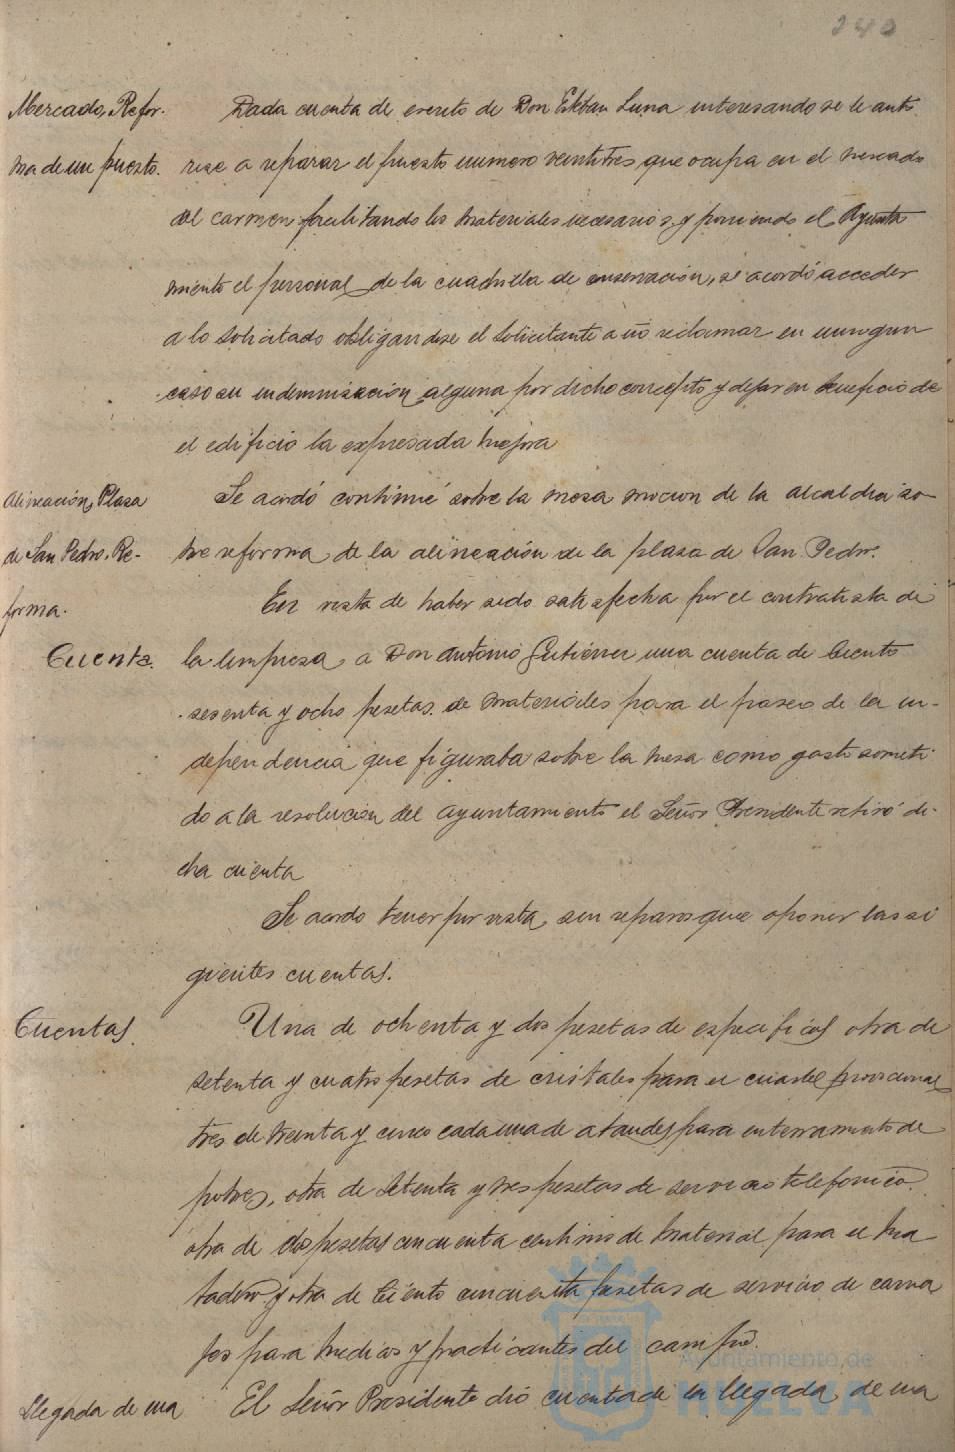 240
Mercado, Refor-
ma de un puesto.
Dada cuenta de escrito de Don Esteban Luna interesando se le auto
rise a reparar el puesto numero veintitres que ocupa en el mercado
del carmen facilitando los materiales necesarios y poniendo el Ayunta
miento el personal de la cuadrilla de conservación, se acordó acceder
a lo solicitado obligandose el solicitante a no reclamar en ningun
caso indemnisación alguna por dicho concepto y dejar en beneficio de
el edificio la expresada mejora
Alineación, Plasa
de San Pedro. Re-
forma.
Se acordó continúe sobre la mesa mocion de la alcaldia so-
bre reforma de la alineación de la plasa de San Pedro.
Cuenta.
En vista de haber sido satisfecha por el contratista de
la limpiesa a Don Antonio Gutiérrez una cuenta de ciento
sesenta y ocho pesetas de materiales para el paseo de la in-
dependencia que figuraba sobre la mesa como gasto someti
do a la resolucion del ayuntamiento el Señor Presidente retiró di-
cha cuenta
Se acordo tener por vista, sin reparos que oponer las si
gientes cuentas.
Cuentas.
Una de ochenta y dos pesetas de especificos otra de
setenta y cuatro pesetas de cristales para el cuartel provisional
tres de treinta y cinco cada una de ataudes para enterramiento de
pobres, otra de setenta y tres pesetas de servicio telefonico.
otra de dos pesetas cincuenta centimos de material para el ma
tadero y otra de ciento cincuenta pesetas de servicio de carrua
jes para medicos y practicantes del campo.
Llegada de una
El Señor Presidente dió cuenta de la llegada de una
Ayuntamiento de
HUELVA